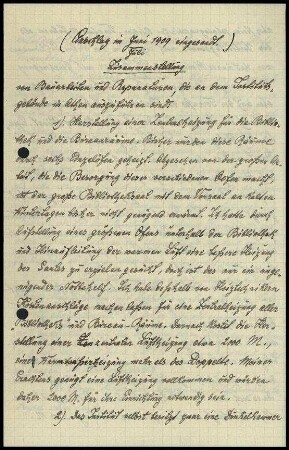 (Vorschlag im Juni 1909 eingesandt.)
Juli
Zusammenstellung
von Bauarbeiten und Reparaturen, die an dem Instituts-
gebäude in Athen auszuführen sind.
1) Herstellung einer Zentralheizung für die Biblio-
thek und die Bureauräume. Bisher wurden diese Räume
durch sechs Regulieröfen geheizt. Abgesehen von der großen Ar-
beit, die die Besorgung dieser verschiedenen Öfen macht,
ist der große Bibliotheksaal mit dem Vorsaal an kalten
Wintertagen bisher nicht genügend erwärmt. Ich hatte durch
Aufstellung eines größeren Ofens unterhalb der Bibliothek
und Hinaufleitung der warmen Luft eine bessere Heizung
des Saales zu erzielen gesucht, doch ist das nur ein unge-
nügender Notbehelf. Ich habe deshalb von
Kostenanschläge machen lassen für eine Zentralheizung aller
Bibliotheks- und Bureau-Räume. Darnach kostet die Her-
stellung einer zentralen Luftheizung etwa 2000 M.,
einer Warmwasserheizung mehr als das Doppelte. Meines
Erachtens genügt eine Luftheizung vollkommen und würden
daher 2000 M. für ihre Einrichtung notwendig sein.
2) Das Institut selbst besitzt zwar eine Dunkelkammer